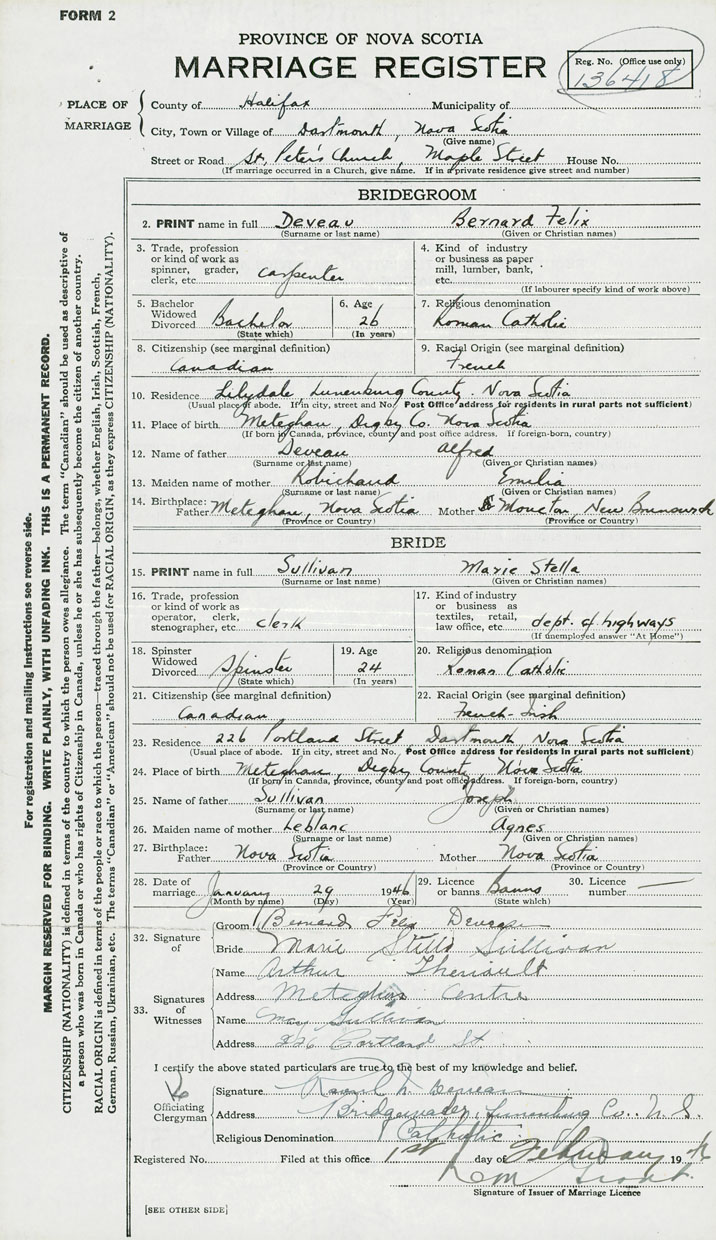 FORM 2
PROVINCE OF NOVA SCOTIA
MARRIAGE REGISTER
Reg. No. (Office use only)
136418
PLACE OF MARRIAGE
County of Halifax Municipality of
City, Town or Village of Dartmouth, Nova Scotia
(Give name)
Street or Road St. Peter's Church, Maple Street House No.
(If marriage occurred in a Church, give name. If in a private residence give street and number)
BRIDEGROOM
2. PRINT name in full Deveau Bernard Felix
(Surname or last name) (Given or Christian names)
3. Trade, profession or kind of work as spinner, grader, clerk, etc. carpenter
4. Kind of industry or business as paper mill, lumber, bank, etc.
(If labourer specify kind of work above)
5. Bachelor Widowed Divorced Bachelor
(State which)
6. Age 26
(In years)
7. Religious denomination
Roman Catholic
8. Citizenship (see marginal definition)
Canadian
9. Racial Origin (see marginal definition)
French
10. Residence Lilydale, Lunenburg County. Nova Scotia
(Usual place of abode. If in city, street and No. Post Office address for residents in rural parts not sufficient)
11. Place of birth Meteghan, Digby Co. Nova Scotia
(If born in Canada, province, county and post office address. If foreign-born, country)
12. Name of father Deveau Alfred
(Surname or last name) (Given or Christian names)
13. Maiden name of mother Robichaud Emilia
(Surname or last name) (Given or Christian names)
14. Birthplace: Father Meteghan, Nova Scotia Mother Moncton, New Brunswick
(Province or Country) (Province or Country)
BRIDE
15. PRINT name in full Sullivan Marie Stella
(Surname or last name) (Given or Christian names)
16. Trade, profession or kind of work as operator, clerk, stenographer, etc. clerk
17. Kind of industry or business as textiles, retail, law office, etc. dept. of highways
(If unemployed answer "At Home")
18. Spinster Widowed Divorced Spinster
(State which)
19. Age 24
(In years)
20. Religious denomination
Roman Catholic
21. Citizenship (see marginal definition)
Canadian
22. Racial Origin (see marginal definition)
French-Irish
23. Residence 226 Portland Street, Dartmouth, Nova Scotia
(Usual place of abode. If in city, street and No. Post Office address for residents in rural parts not sufficient)
24. Place of birth Meteghan, Digby County, Nova Scotia
(If born in Canada, province, county and post office address. If foreign-born, country)
25. Name of father Sullivan Joseph
(Surname or last name) (Given or Christian names)
26. Maiden name of mother Leblanc Agnes
(Surname or last name) (Given or Christian names)
27. Birthplace: Father Nova Scotia Mother Nova Scotia
(Province or Country) (Province or Country)
28. Date of marriage January 29 1946
(Month by name) (Day) (Year)
29. Licence or banns Banns
(State which)
30. Licence number
32. Signature of
Groom Bernard Felix Deveau
Bride Marie Stella Sullivan
33. Signatures of Witnesses
Name Arthur Theriault
Address Meteghan Centre
Name May Sullivan
Address 226 Portland St.
I certify the above stated particulars are true to the best of my knowledge and belief.
Officiating Clergyman
Signature Deveau
Address Bridgewater, Lunenburg Co. N. S.
Religious Denomination Catholic
Registered No. Filed at this office 1st day of February 1946
Grant
Signature of Issuer of Marriage Licence
[SEE OTHER SIDE]
For registration and mailing instructions see reverse side.
MARGIN RESERVED FOR BINDING. WRITE PLAINLY, WITH UNFADING INK. THIS IS A PERMANENT RECORD.
CITIZENSHIP (NATIONALITY) is defined in terms of the country to which the person owes allegiance. The term "Canadian" should be used as descriptive of
a person who was born in Canada or who has rights of Citizenship in Canada, unless he or she has subsequently become the citizen of another country.
RACIAL ORIGIN is defined in terms of the people or race to which the person—traced through the father—belongs, whether English, Irish, Scottish, French,
German, Russian, Ukrainian, etc. The terms "Canadian" or "American" should not be used for RACIAL ORIGIN, as they express CITIZENSHIP (NATIONALITY).